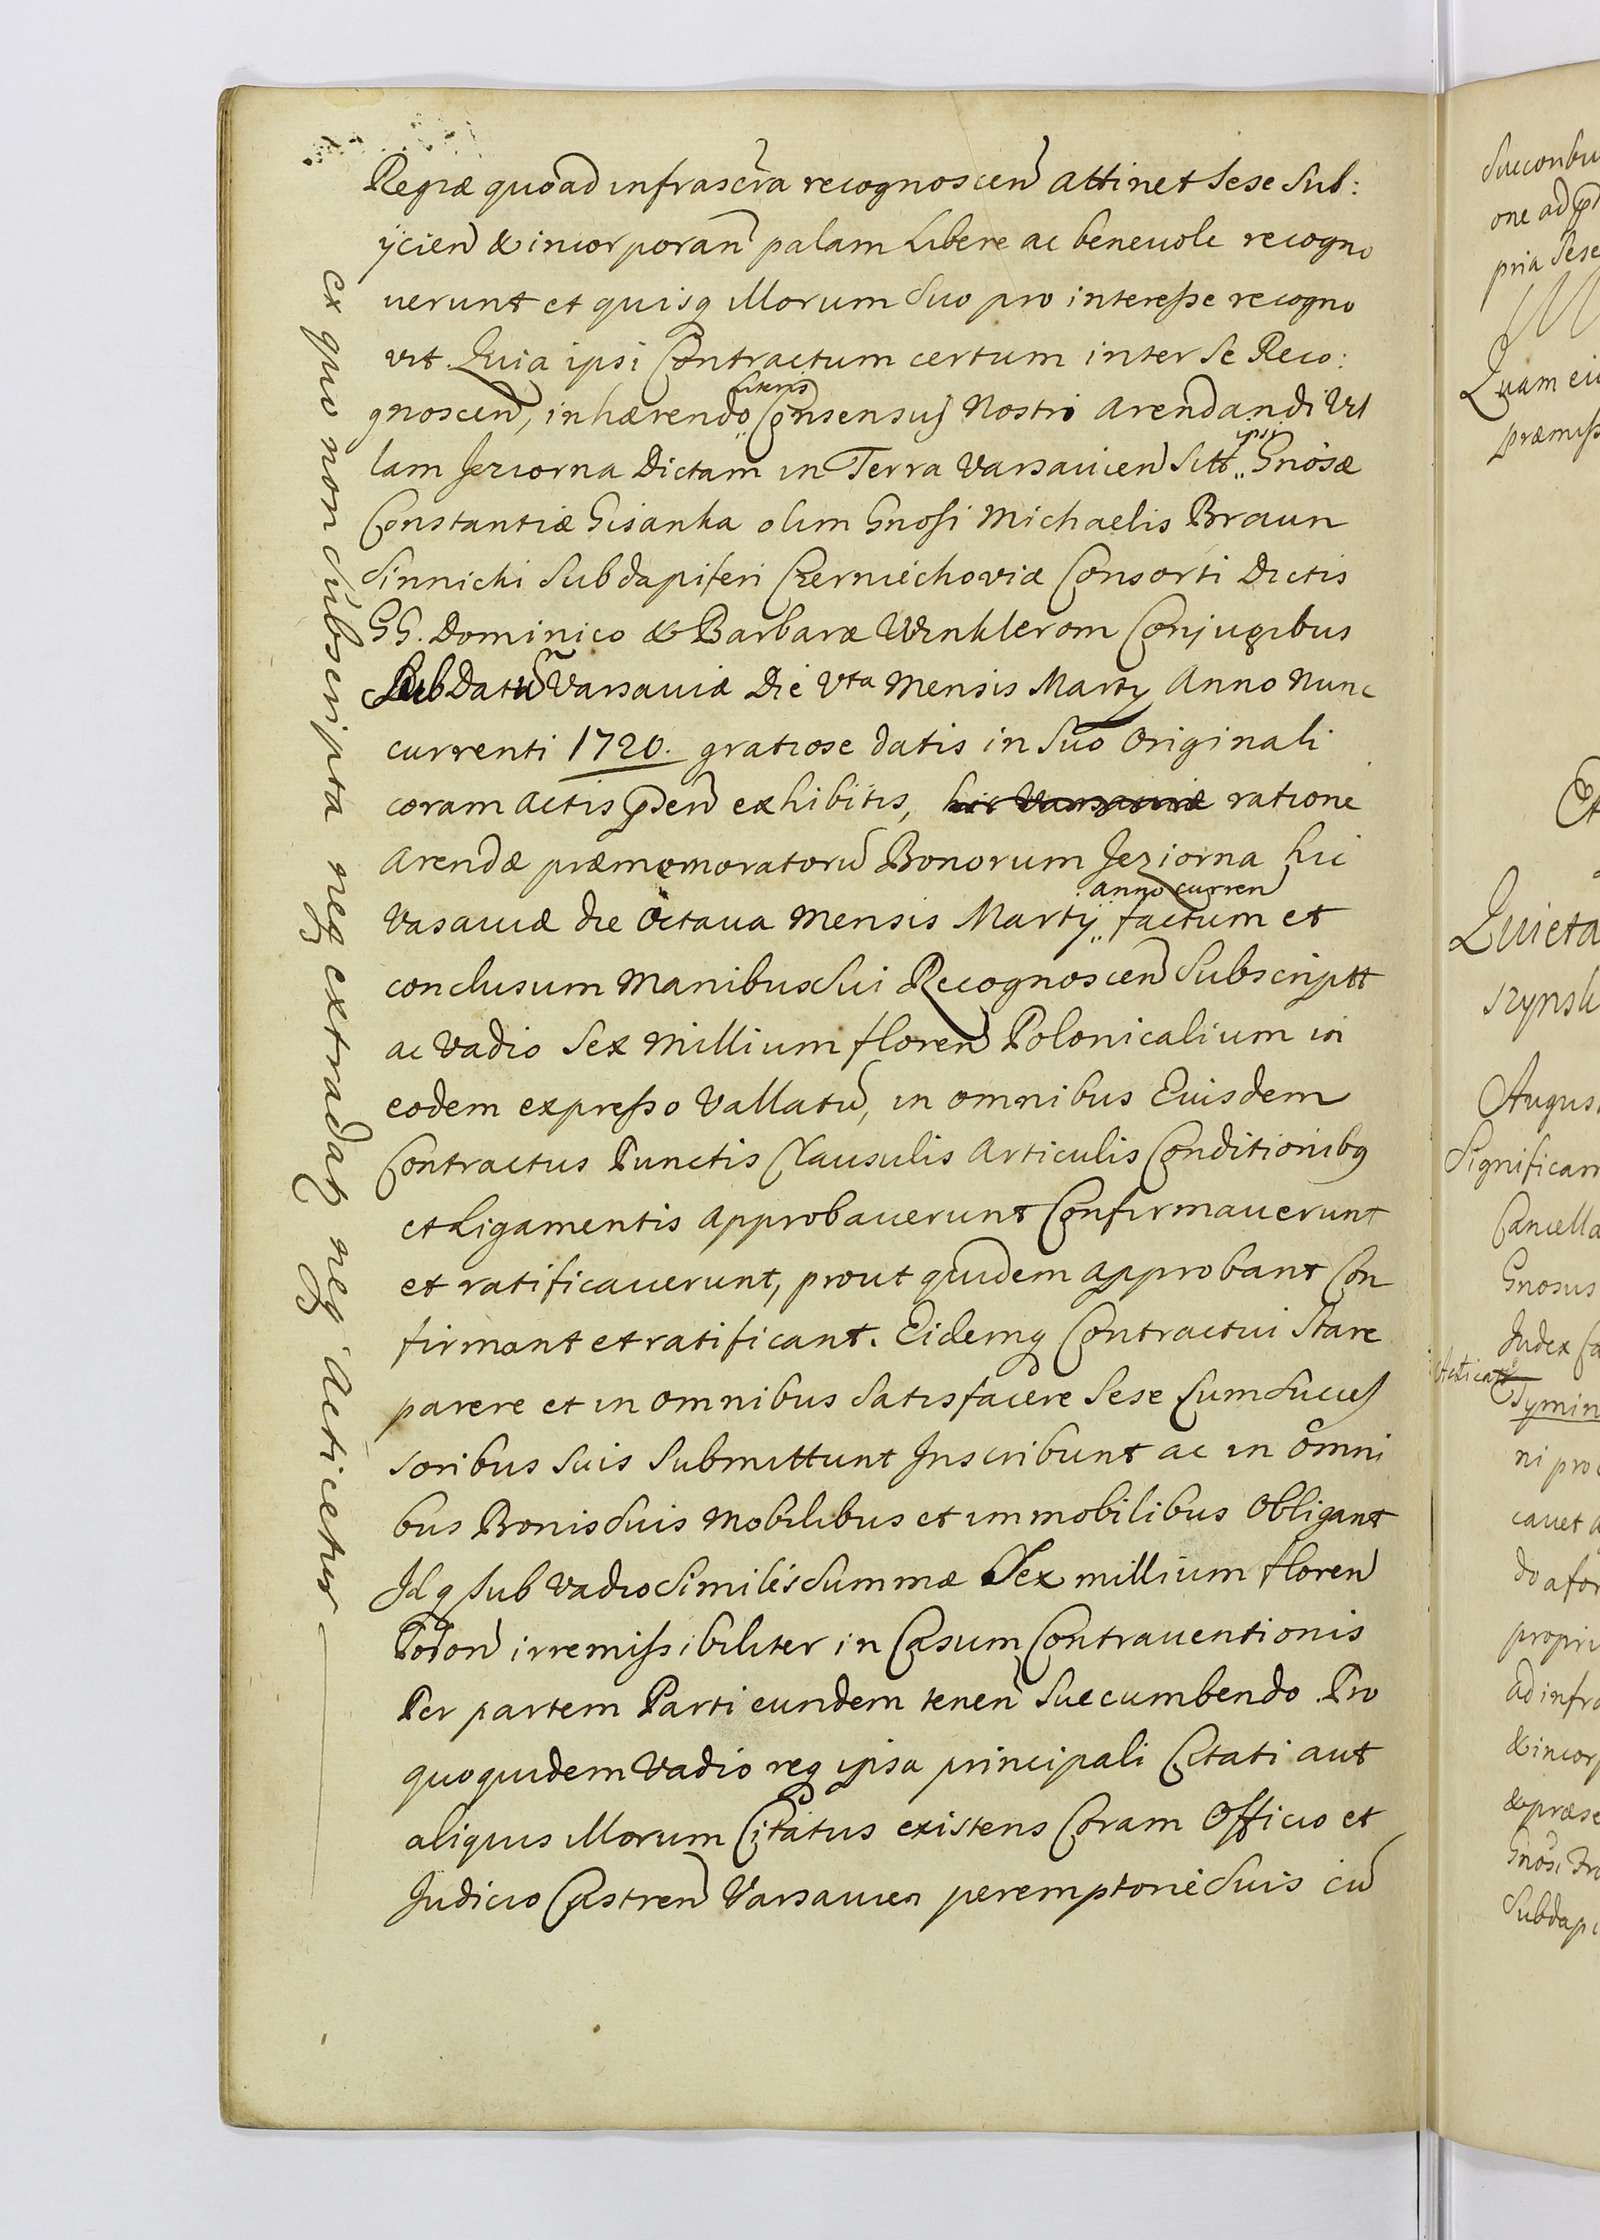 Regiæ quoad infrascra recognoscen attinet sese sub:
ÿcien & incorporan palam libere ac beneuole recogno
uerunt et quisq illorum suo pro interesse recogno
vit. Quia ipsi Contractum certum inter se Reco:
gnoscen, inhærendo Literis Consensus Nostri arendandi Vil
lam Jeziorna Dictam in Terra Varsauien sitt ipsi Gnosæ
Constantiæ Gisanka olim Gnosi Michaelis Braun
Sinnicki Subdapiferi Czerniechoviæ Consorti Dictis
GG. Dominico & Barbaræ Winklerom Conjugibus
Sub Datũ Varsauiæ Die Vta Mensis Martÿ Anno Nunc
currenti 1720. gratiose datis in suo Originali
coram actis pden exhibitis, hic Varsauiæ ratione
arendæ præmemoratorũ Bonorum Jeziorna hic
Vasauiæ die Octaua Mensis Martÿ anno curren factum et
conclusum Manibus sui Recognoscen Subscriptt
ac Vadio Sex Millium floren Polonicalium in
eodem expresso Vallatũ, in omnibus Eiusdem
Contractus Punctis Clausulis Articulis Conditionibq
et Ligamentis approbauerunt Confirmauerunt
et ratificauerunt, prout quidem approbant Con
firmant et ratificant. Eidemq Contractui stare
parere et in omnibus satisfacere sese cum succes
soribus suis submittunt Inscribunt ac in omni
bus Bonis suis Mobilibus et immobilibus Obligant
Idq sub vadio similis summæ Sex millium floren
Polon irremissibiliter in Casum Contrauentionis
Per partem Parti eundem tenen succumbendo. Pro
quo quidem Vadio req ipsa principali Citati aut
aliquis illorum Citatus existens Coram Officio et
Judicio Castren Varsauien peremptorie suis cũ
ex quo non subscripta neq extradatq neq acticetur
one ad
pria sese
Quam
præmiss
Et
Quieta
szynsk
Augus
Significam
Cancella
Gnosus
Judex Ca
Acticatt
Tymin
ni pro
cauet
do afor
propri
ad infra
& incorp
& præse
Gnosi
Subdapi